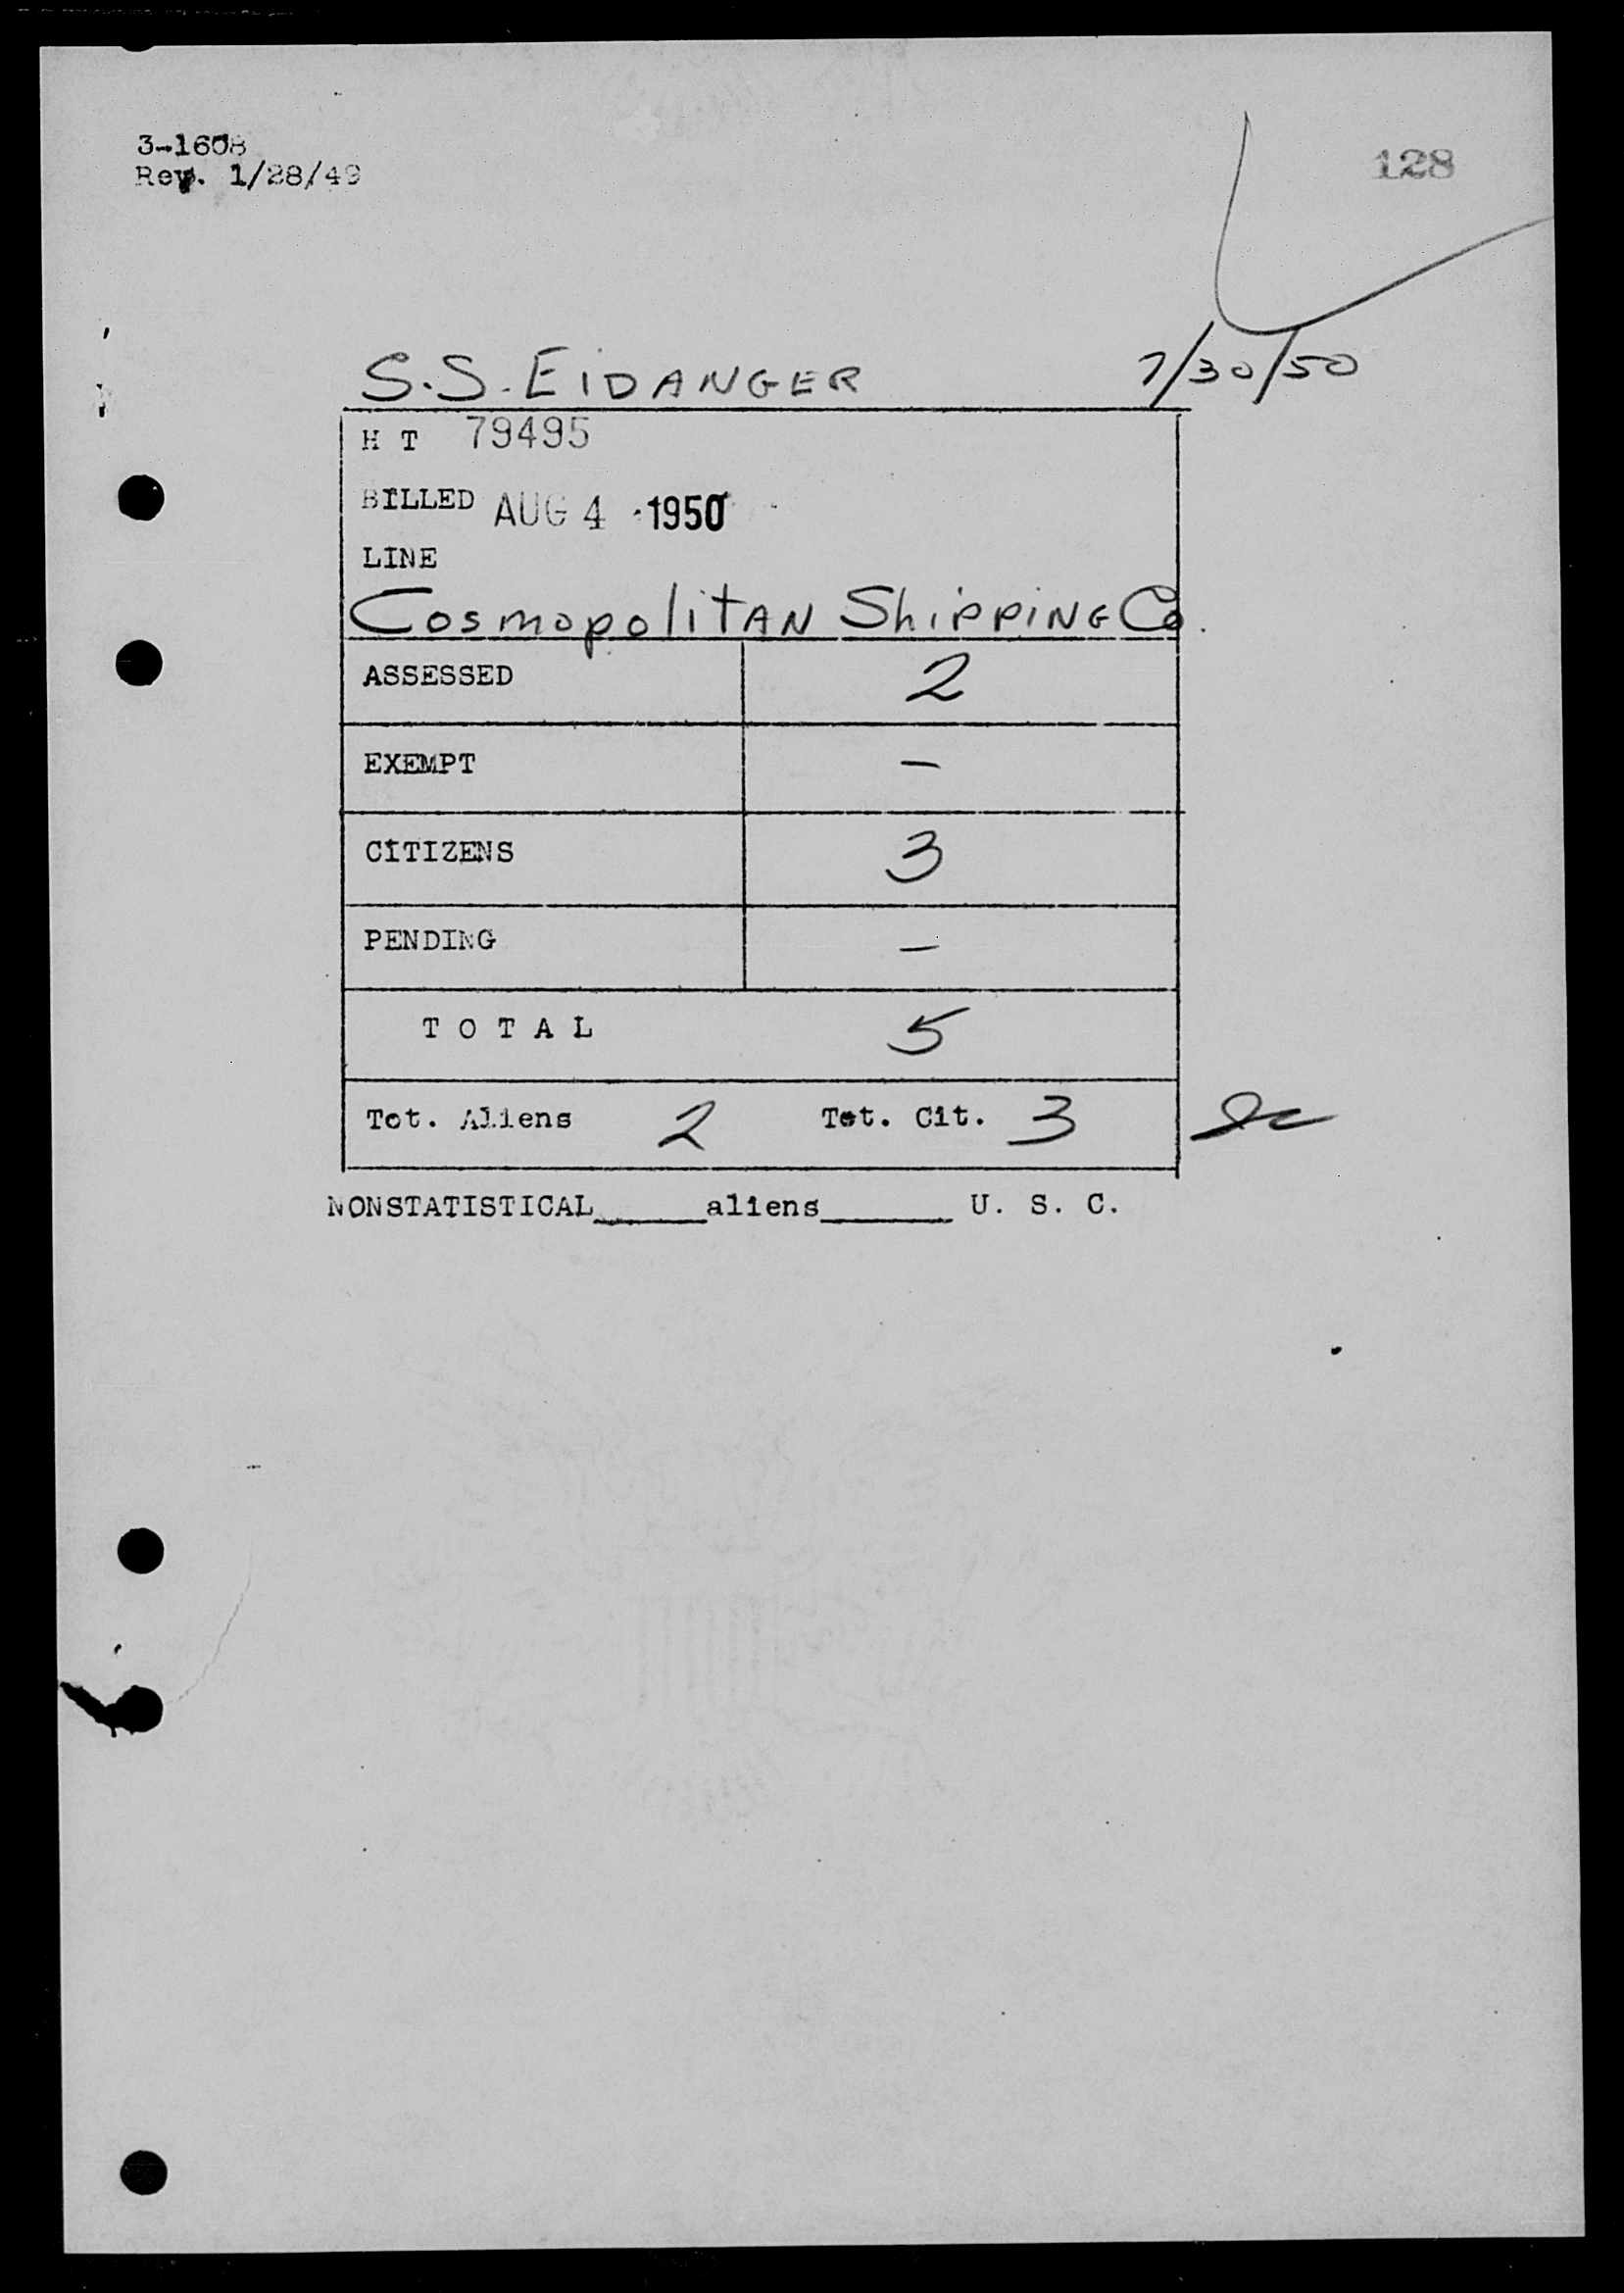 3-1608
Rev. 1/28/49
128
S.S. EIDANGER 7/30/50
H T 79495
BILLED AUG 4 1950
LINE
Cosmopolitan Shipping Co.
ASSESSED 2
EXEMPT —
CITIZENS 3
PENDING —
TOTAL 5
Tot. Aliens 2 Tot. Cit. 3
NONSTATISTICAL______aliens_______ U. S. C.